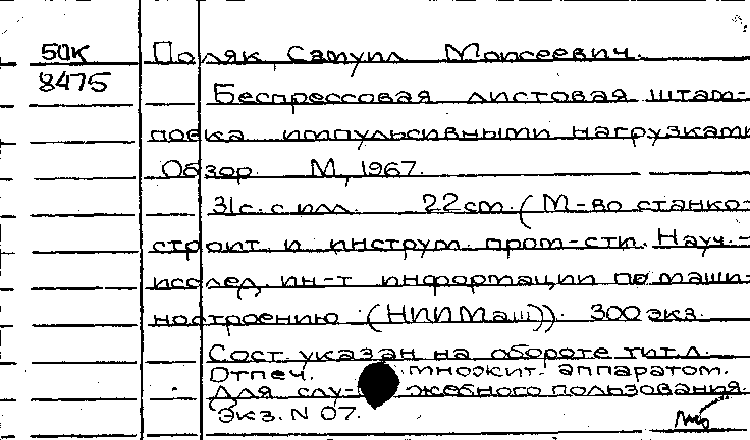 50к Поляк, Самуил Моисеевич.
8475
Беспрессовая листовая штам-
повка импульсивными нагрузками
Обзор. М., 1967.
31с. с илл. 22см. (М-во станко-
строит. и инструм. пром-сти. Науч.-
исслед. ин-т информации по маши-
ностроению (НИИМаш)). 300 экз.
Сост. указан на обороте тит. л.
Отпеч. множит. аппаратом.
Для служебного пользования.
Экз. N 07.